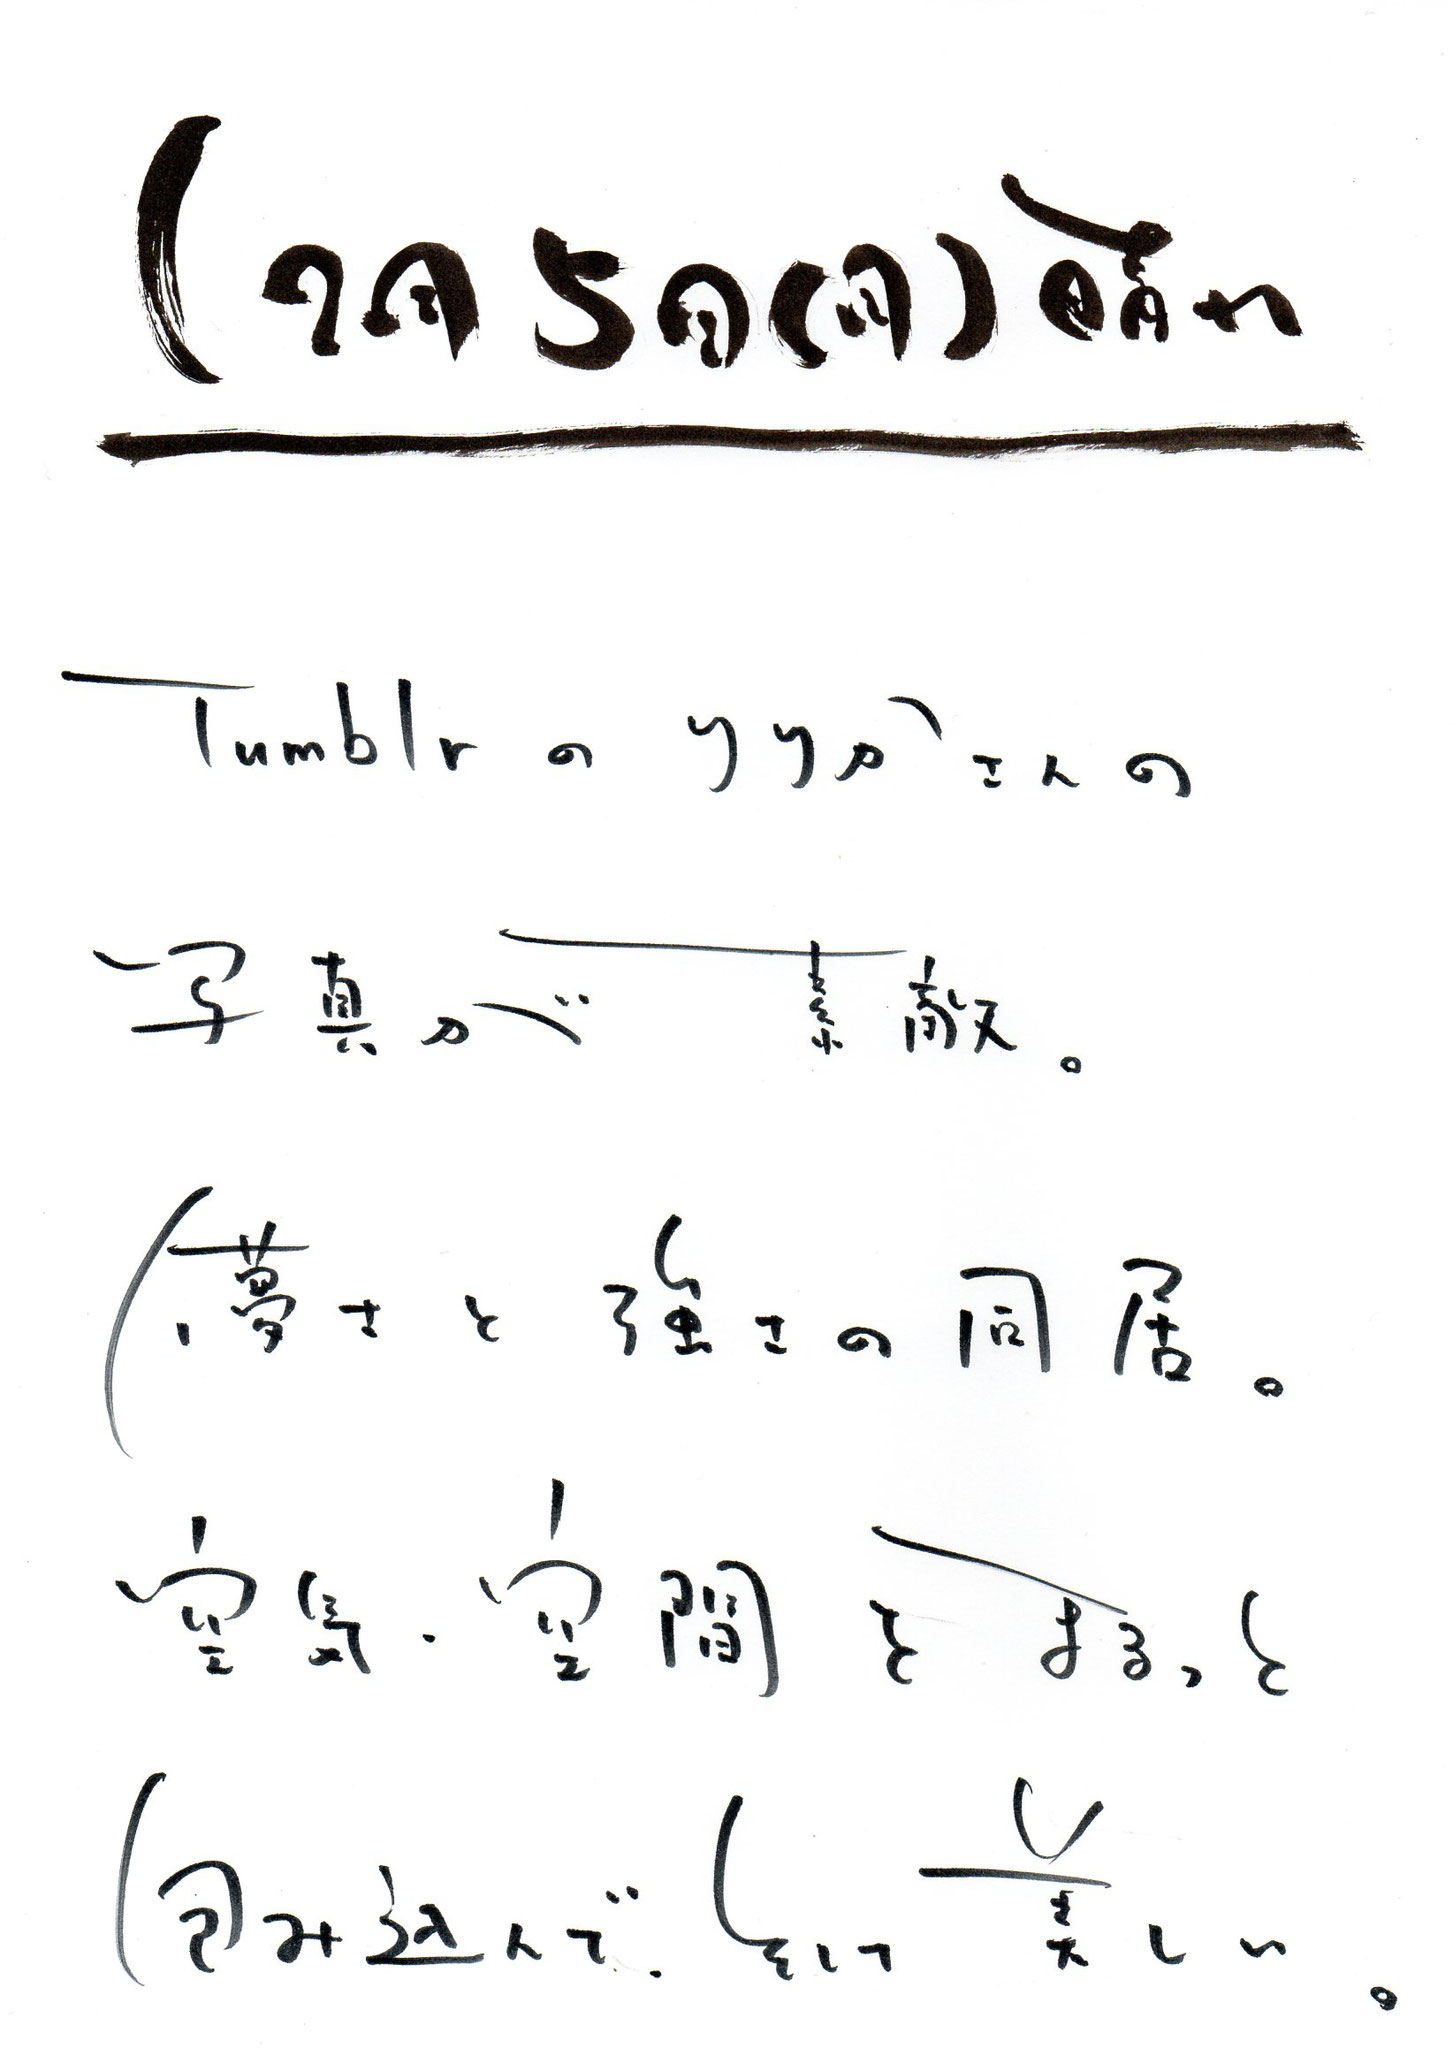 7月5日(月)晴れ
Tumblrのリリカさんの
写真が素敵。
儚さと強さの同居。
空気・空間をまるっと
包み込んで、そして美しい。